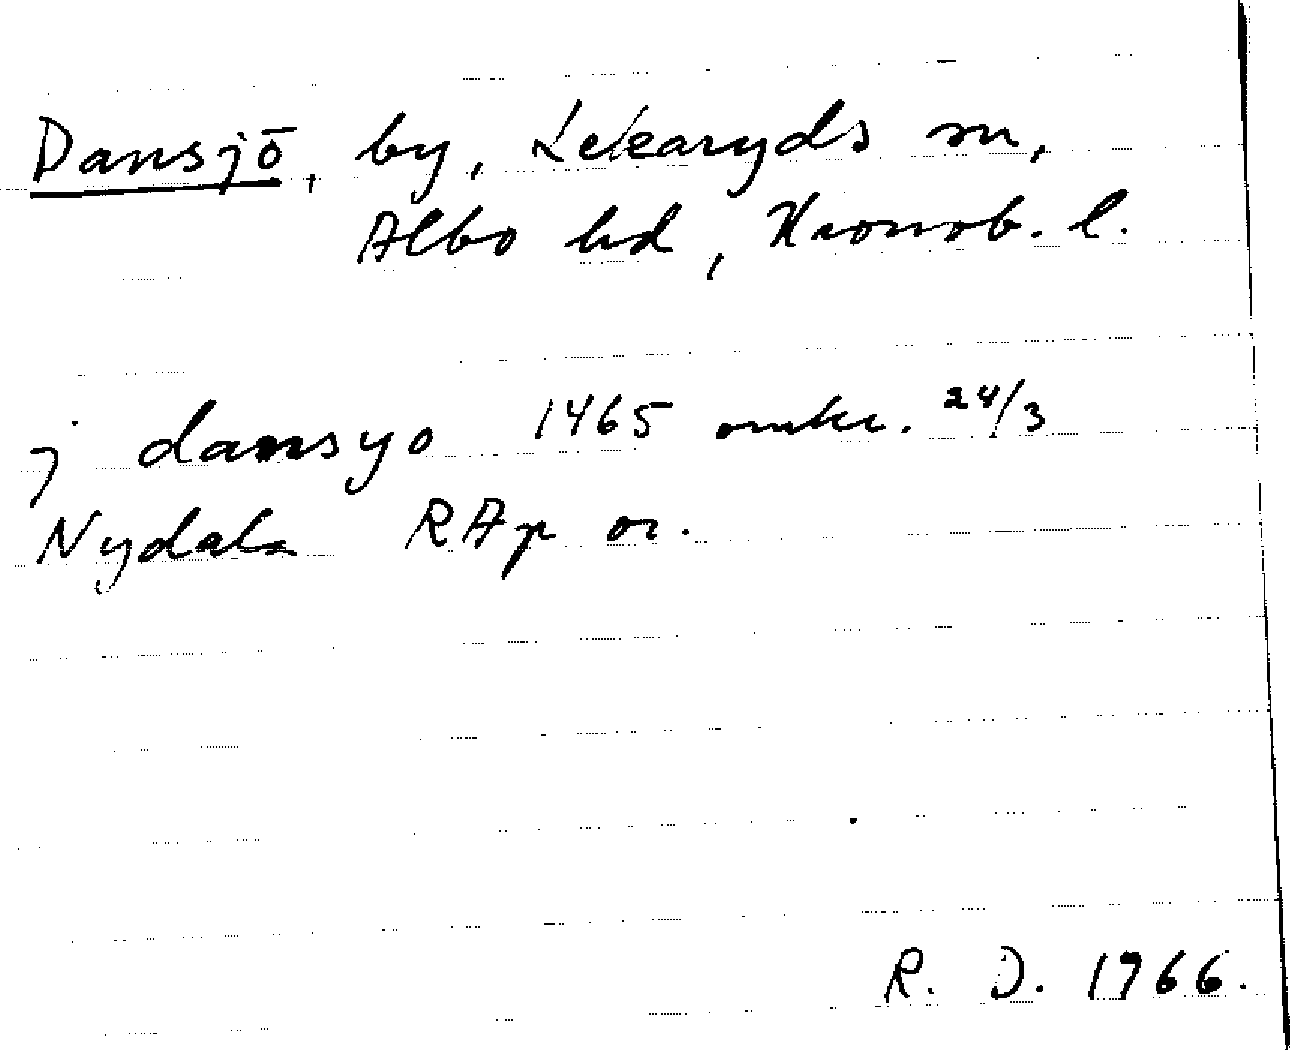 Dansjö, by, Lekaryds sn,
Albo hd, Kronob. l.
j dansyo 1465 omkr. 24/3
Nydala RAp or.
R. D. 1966.